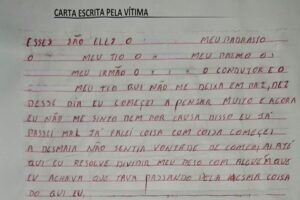 CARTA ESCRITA PELA VÍTIMA
ESSES SÃO ELLES O MEU PADRASSO
O MEU TIO O MEU PRIMO O
MEU IRMÃO O O CONDUTOR E O
MEU TIO QUE NÃO ME DEIXA EM PAZ, DEZ
DESSE DIA EU COMEÇEI A PENSAR MUITO E AGORA
EU NÃO ME SINTO BEM POR CAUSA DISSO EU JÁ
PASSEI MAL JÁ FALEI COISA COM COISA COMEÇEI
A DESMAIA NÃO SENTIA VONTADE DE COMER, ALATÉ
QUI EU RESOLVE DIVIDIR MEU PESO COM ALGUÉM QUE
EU ACHAVA QUE TAVA PASSANDO PELA MESMA COISA
DO QUI EU.